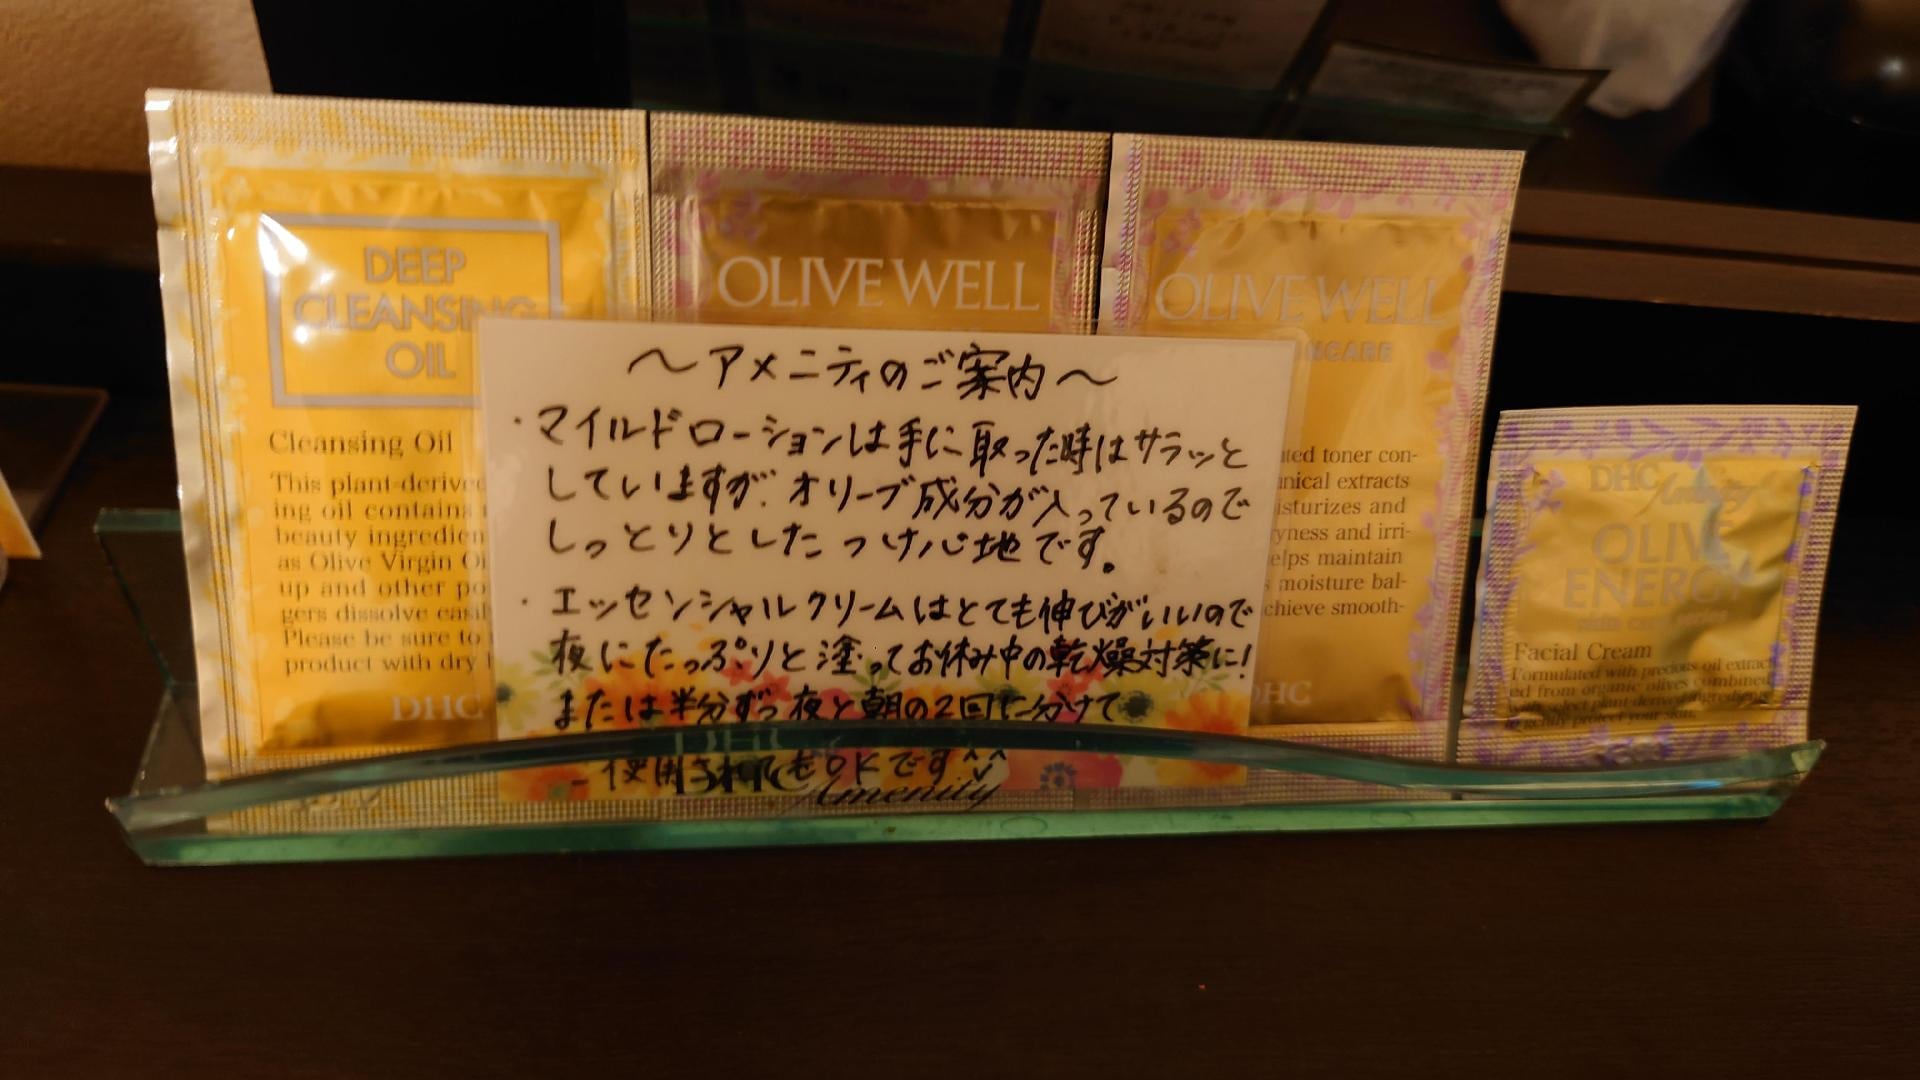 DEEP
CLEANSING
OIL
Cleansing Oil
This plant-derived
ing oil contains
beauty ingredien
as Olive Virgin Oi
up and other po
gers dissolve easil
Please be sure to
product with dry
DHC
OLIVE WELL
OLIVE WELL
NCARE
ted toner con-
nical extracts
isturizes and
yness and irri-
elps maintain
s moisture bal-
chieve smooth-
DHC
～アメニティのご案内～
・マイルドローションは手に取った時はサラッと
していますが、オリーブ成分が入っているので
しっとりとしたつけ心地です。
・エッセンシャルクリームはとても伸びがいいので
夜にたっぷりと塗ってお休み中の乾燥対策に!
または半分ずつ夜と朝の2回に分けて
使用されてもOKです^v^
DHC
Amenity
DHC Amenity
OLIVE
ENERGY
skin care series
Facial Cream
Formulated with precious oil extract
ed from organic olives combined
with select plant-derived ingredients
to gently protect your skin.